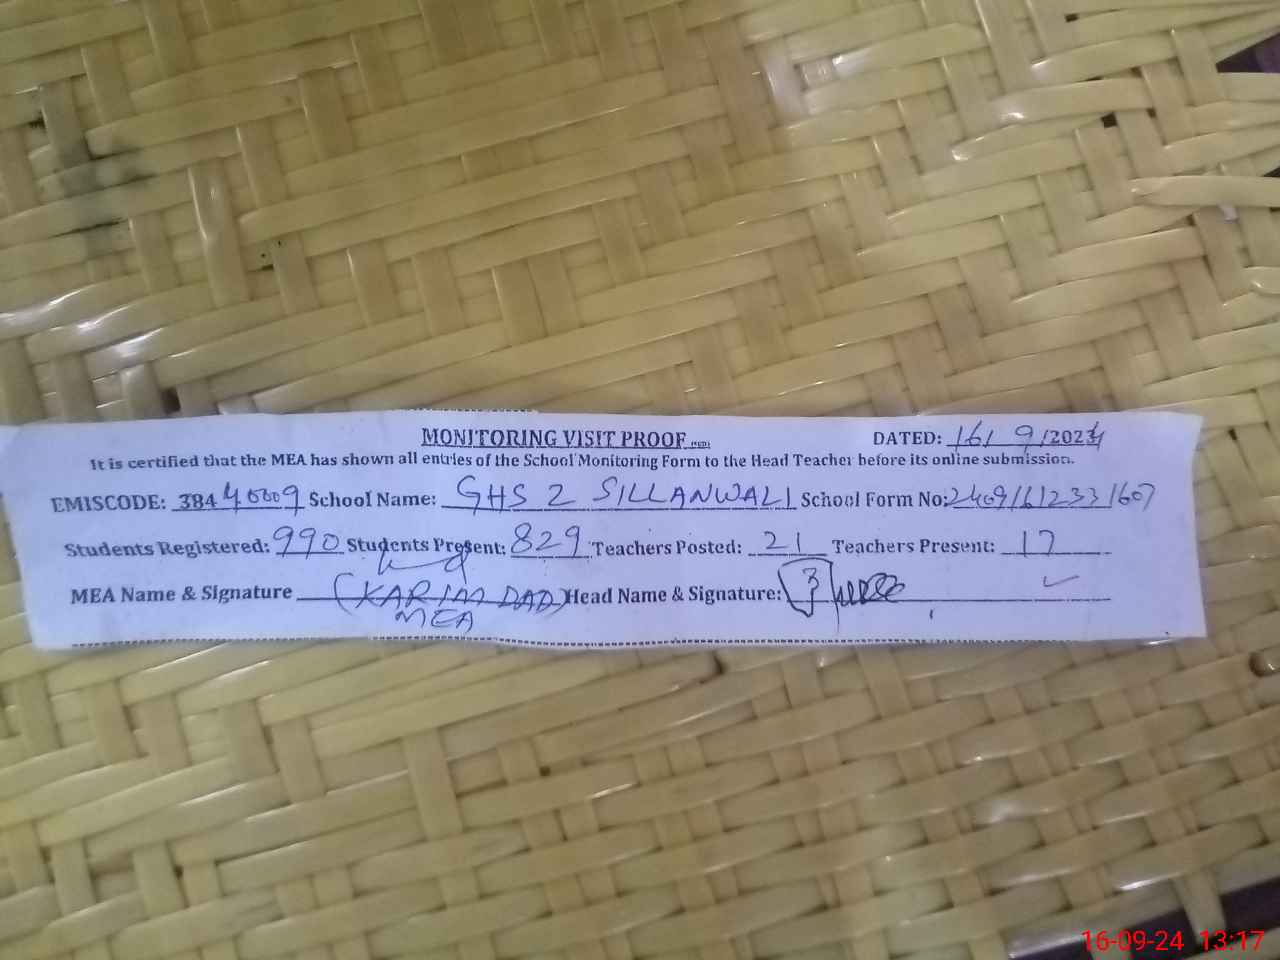 MONITORING VISIT PROOF DATED: 16/9/2024
It is certified that the MEA has shown all entries of the School Monitoring Form to the Head Teacher before its online submission.
EMISCODE: 38440009 School Name: GHS 2 SILLANWALI School Form No:
Students Registered: 990 Students Present: 829 Teachers Posted: 21 Teachers Present: 17
MEA Name & Signature (KARIM DAD) Head Name & Signature:
MEA
16-09-24 13:17